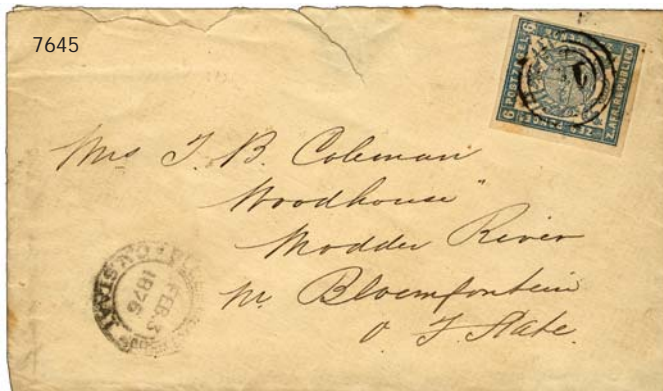 7645
6 POSTZEGEL 6
Z. AFR. REPUBLIEK
ZES PENCE
Mrs T. B. Coleman
Woodhouse"
Modder River
nr. Bloemfontein
O. F. State.
FEB 3
1876